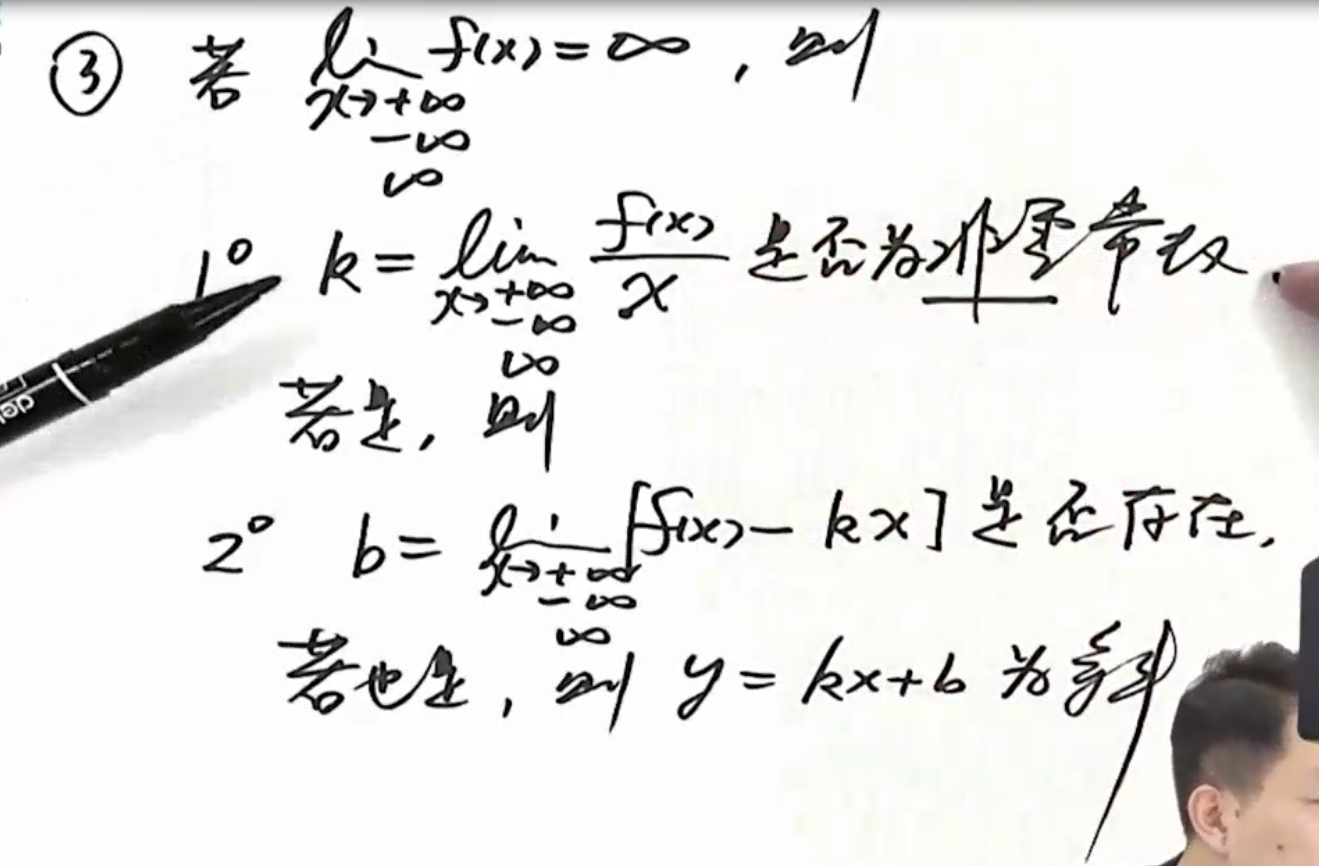 ③ 若 lim f(x) = ∞ , 则
x→+∞
-∞
∞
1° k = lim f(x)/x 是否为非零常数
x→+∞
-∞
∞
若是, 则
2° b = lim [f(x) - kx] 是否存在,
x→+∞
-∞
∞
若也是, 则 y = kx+b 为斜
del